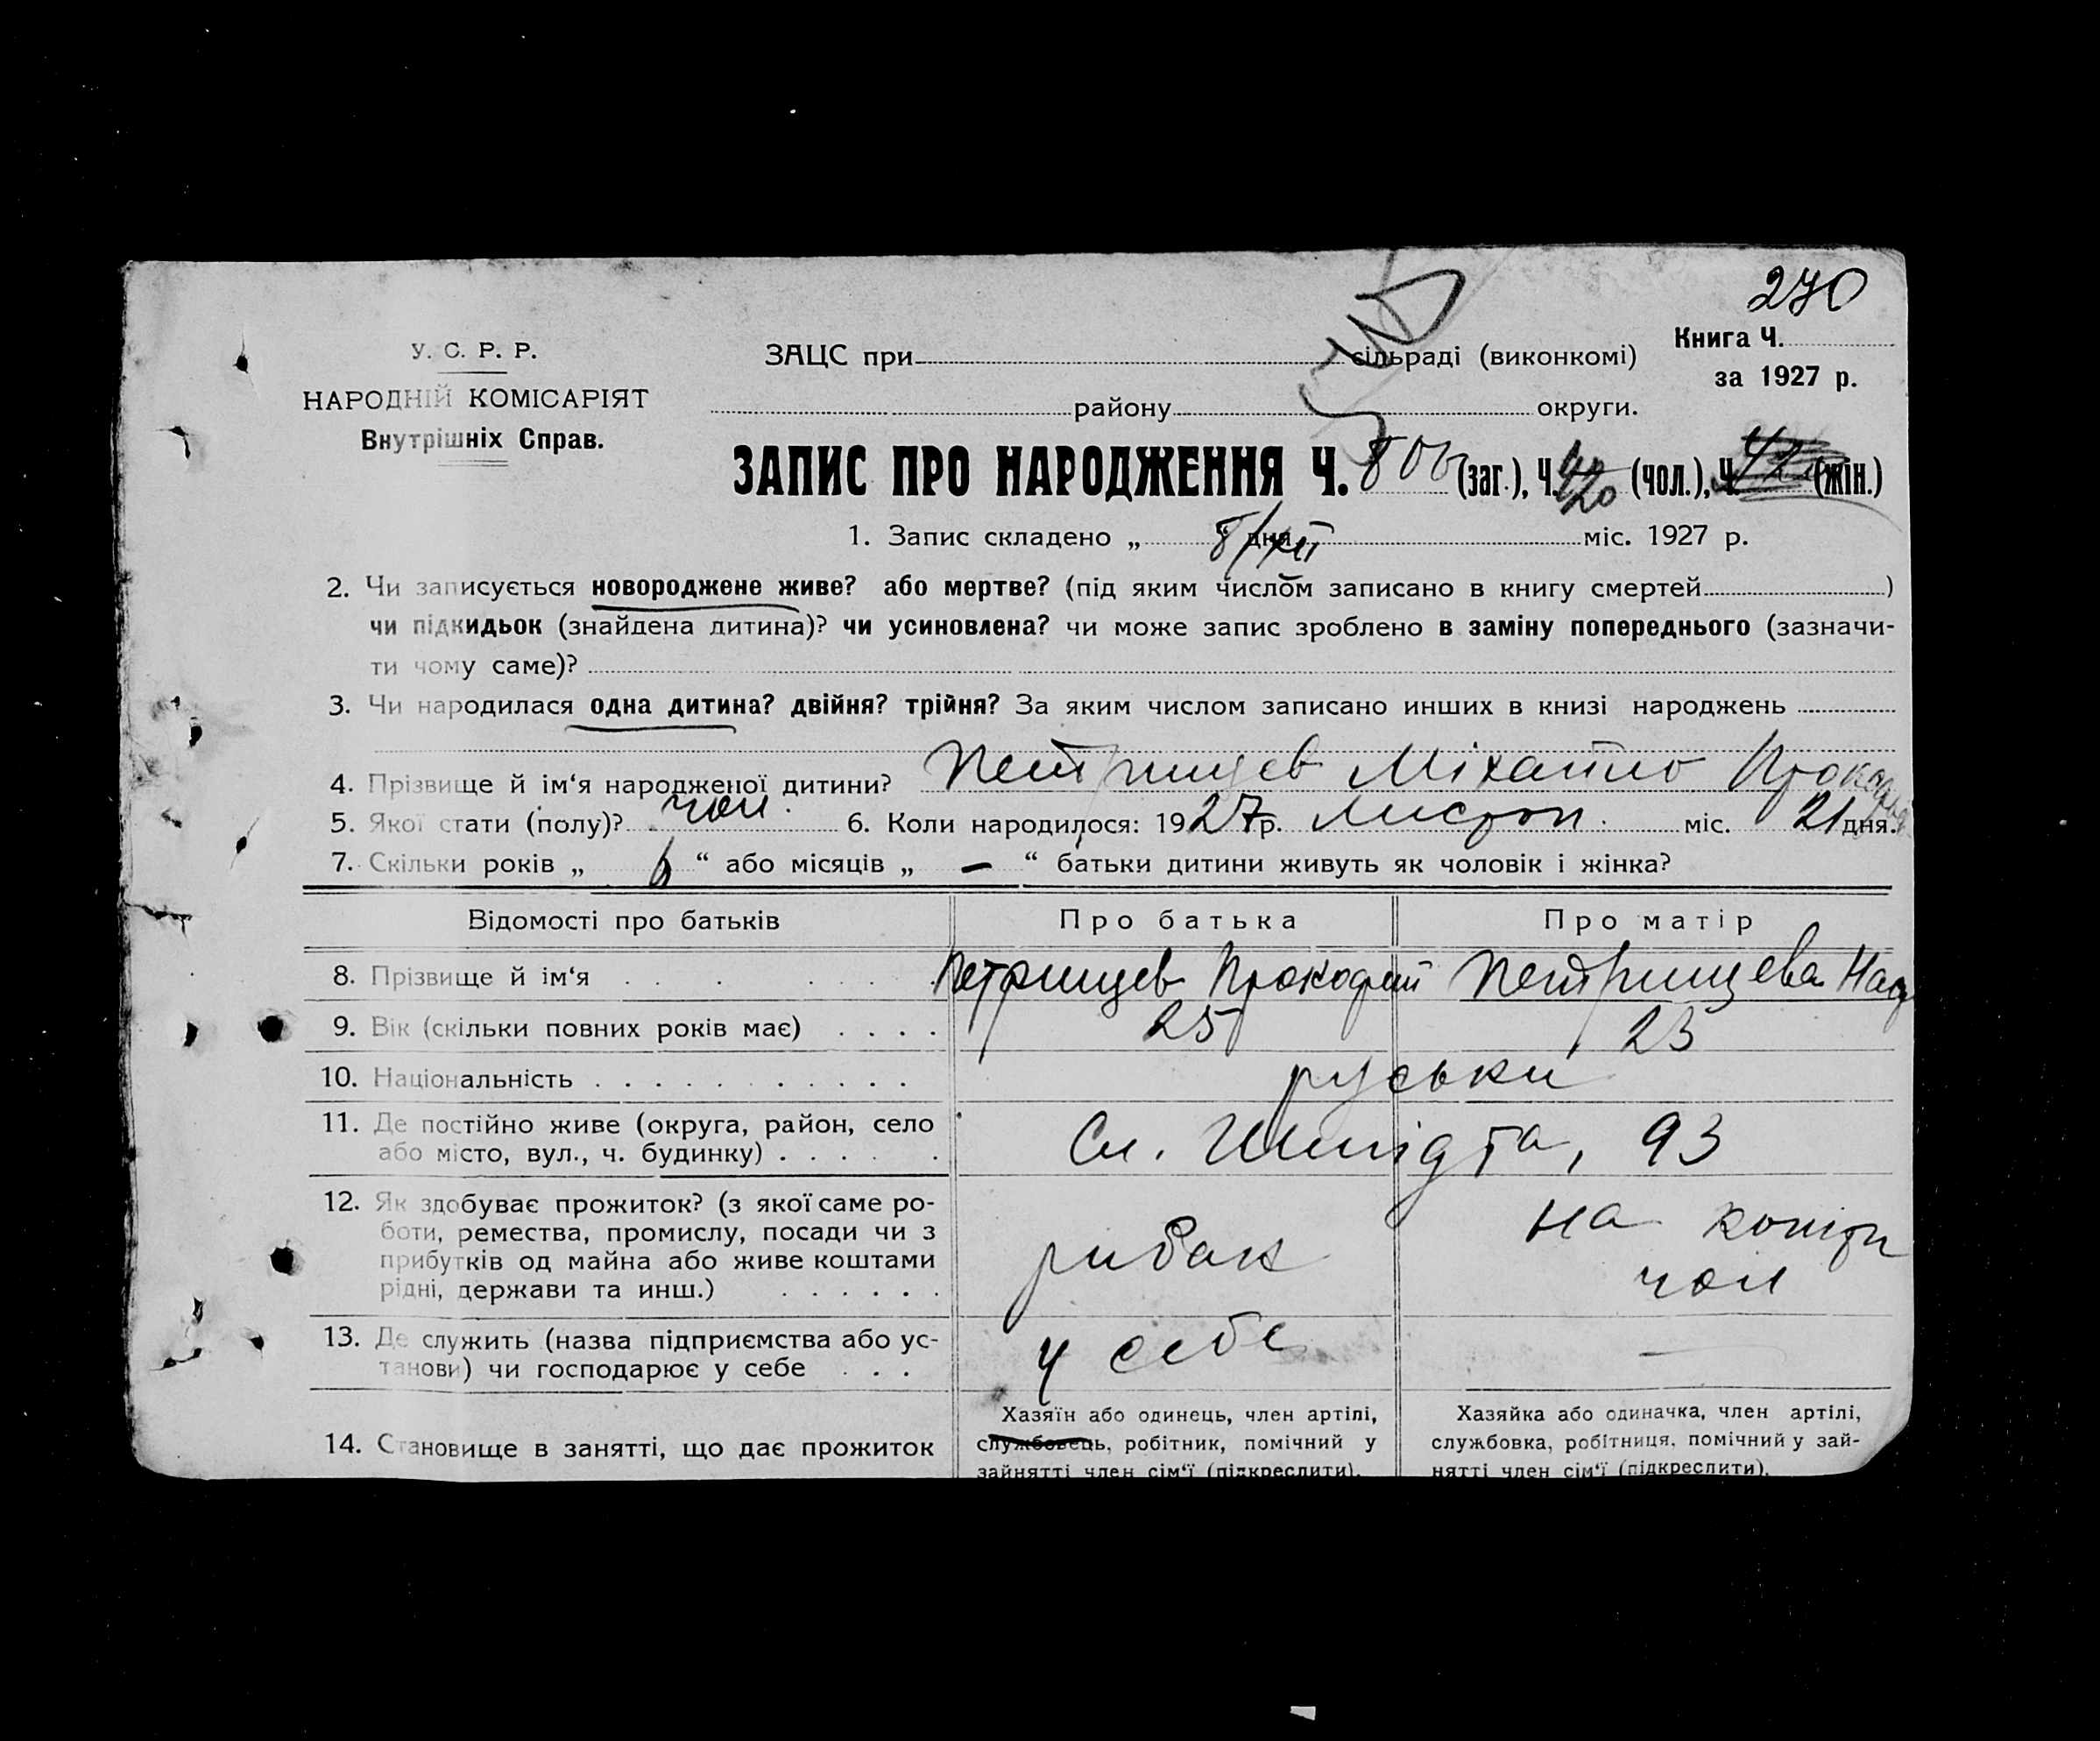 270
У. С. Р. Р.
НАРОДНІЙ КОМІСАРІЯТ
Внутрішніх Справ.
ЗАЦС при сільраді (виконкомі)
району округи.
Книга Ч.
за 1927 р.
ЗАПИС ПРО НАРОДЖЕННЯ Ч. 806 (заг.), Ч. 420 (чол.), Ч. (жін.)
1. Запис складено „ 8/XII “ дня міс. 1927 р.
2. Чи записується новороджене живе? або мертве? (під яким числом записано в книгу смертей )
чи підкидьок (знайдена дитина)? чи усиновлена? чи може запис зроблено в заміну попереднього (зазначи-
ти чому саме)?
3. Чи народилася одна дитина? двійня? трійня? За яким числом записано инших в книзі народжень
4. Прізвище й ім‘я народженої дитини? Петрищев Міхайло
5. Якої стати (полу)? чол. 6. Коли народилося: 1927 р. Листоп. міс. 21 дня.
7. Скільки років „ 6 “ або місяців „ — “ батьки дитини живуть як чоловік і жінка?
Відомості про батьків Про батька Про матір
8. Прізвище й ім‘я Петрищев Прокофий Петрищева
9. Вік (скільки повних років має) 25 23
10. Національність руськи
11. Де постійно живе (округа, район, село
або місто, вул., ч. будинку) Сл. Шмідта, 93
12. Як здобуває прожиток? (з якої саме ро-
боти, ремества, промислу, посади чи з
прибутків од майна або живе коштами
рідні, держави та инш.) рибак на кошти
чол
13. Де служить (назва підприємства або ус-
танови) чи господарює у себе у себе —
14. Становище в занятті, що дає прожиток
Хазяїн або одинець, член артілі,
службовець, робітник, помічний у
зайнятті член сім‘ї (підкреслити).
Хазяйка або одиначка, член артілі,
службовка, робітниця, помічний у зай-
нятті член сім‘ї (підкреслити).